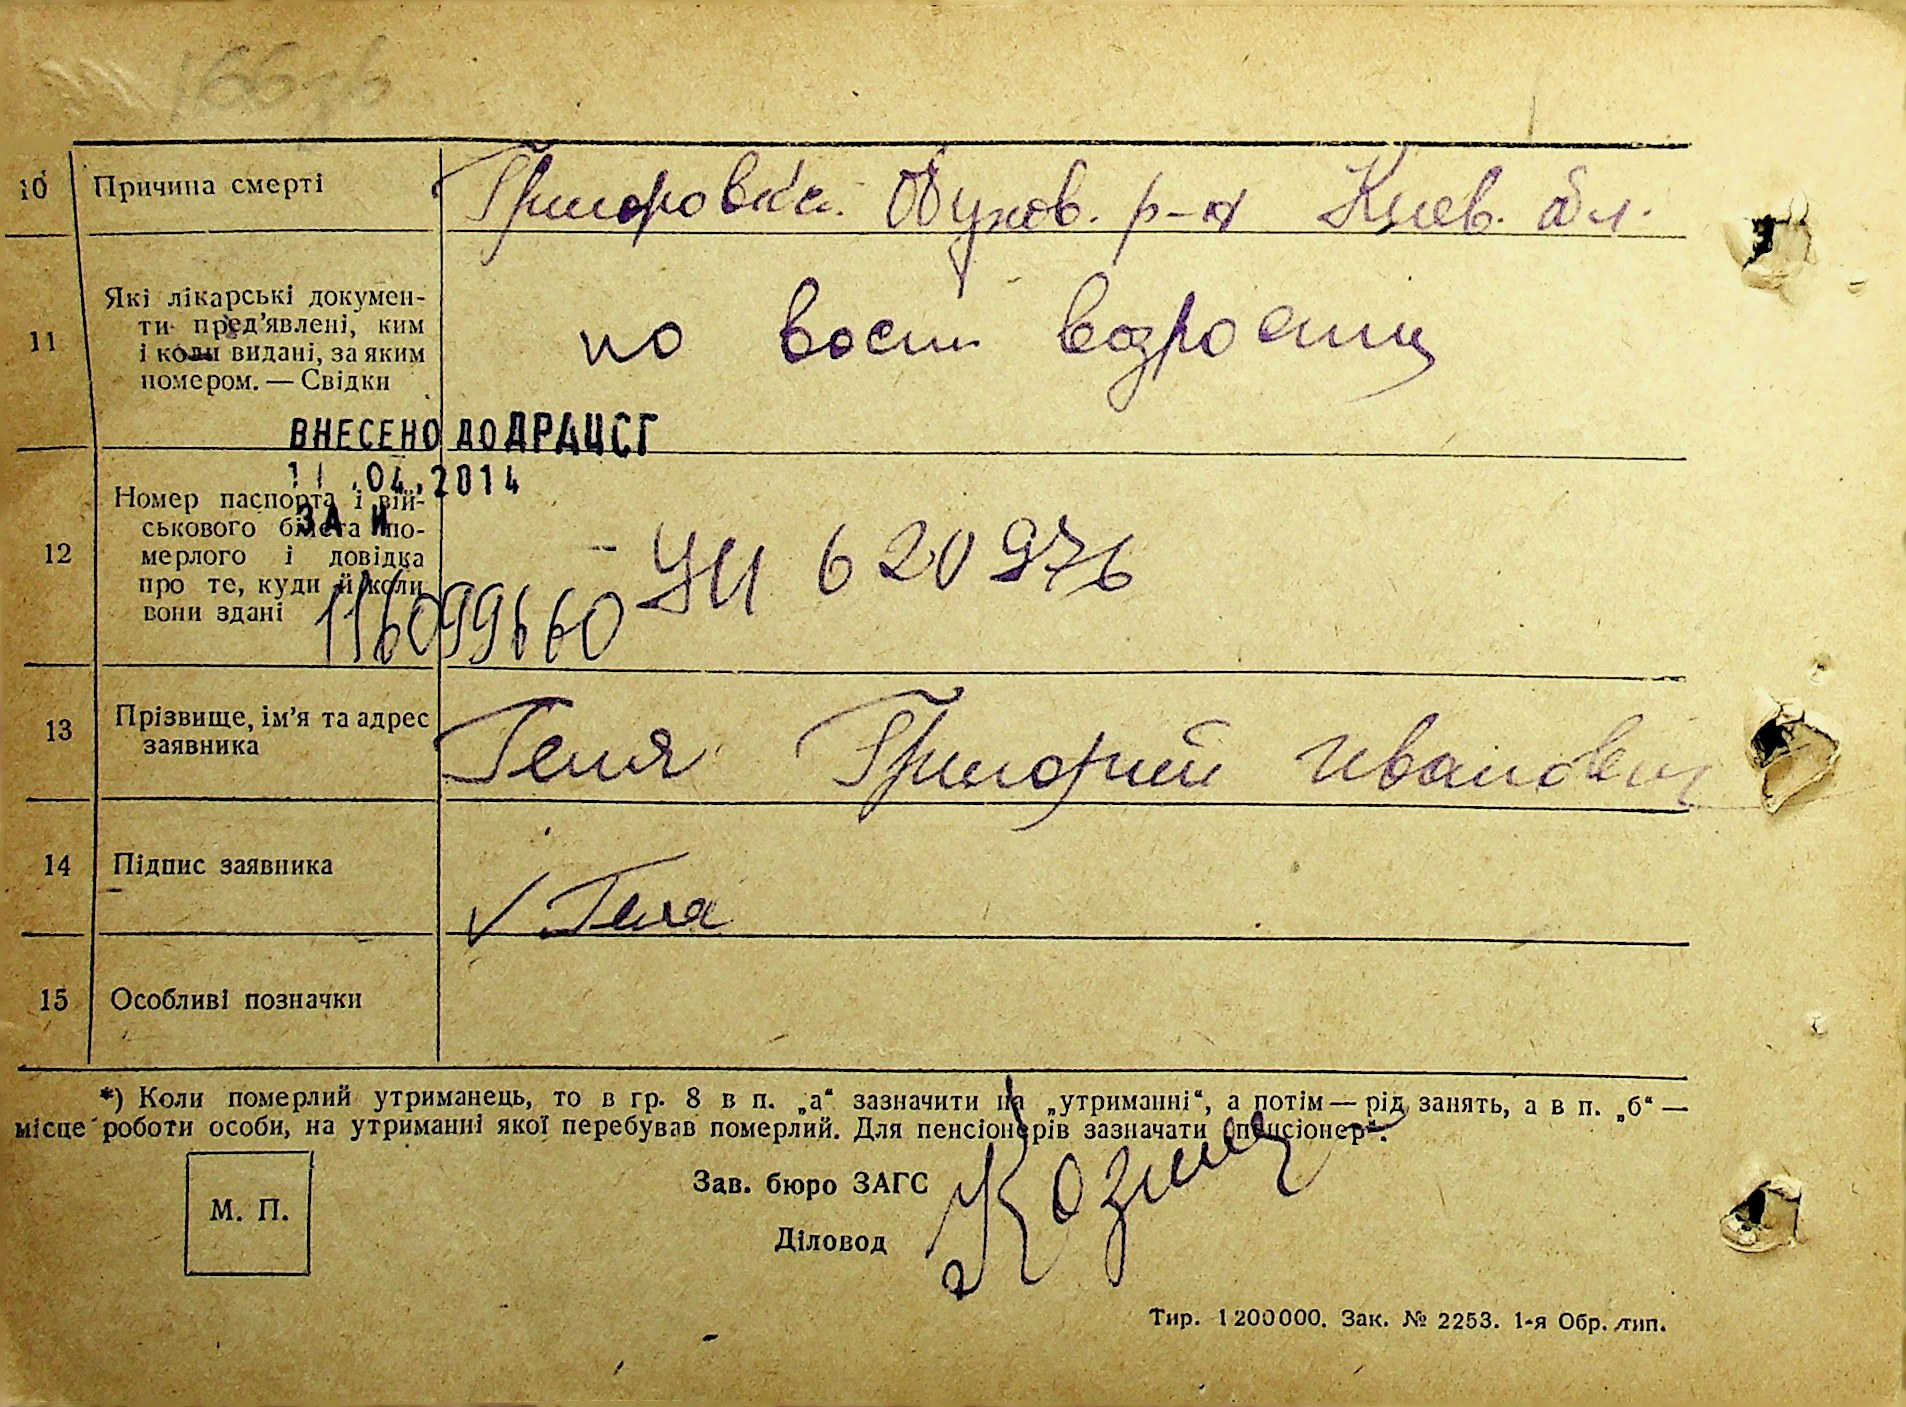 10 Причина смерті Григоровка. Обухов. р-н Киев. обл.
11 Які лікарські докумен-
ти пред’явлені, ким
і коли видані, за яким
номером. — Свідки
по возрасту
ВНЕСЕНО ДО ДРАЦСГ
11.04.2014
ЗА №
1156099660
12 Номер паспорта і вій-
ськового білета по-
мерлого і довідка
про те, куди й коли
вони здані
620976
13 Прізвище, ім’я та адрес
заявника
Геля Григорий Иванович
14 Підпис заявника
Геля
15 Особливі позначки
*) Коли померлий утриманець, то в гр. 8 в п. „а“ зазначити на „утриманні“, а потім — рід занять, а в п. „б“ —
місце роботи особи, на утриманні якої перебував померлий. Для пенсіонерів зазначати „пенсіонер“.
М. П.
Зав. бюро ЗАГС
Діловод
Тир. 1200000. Зак. № 2253. 1-я Обр. тип.